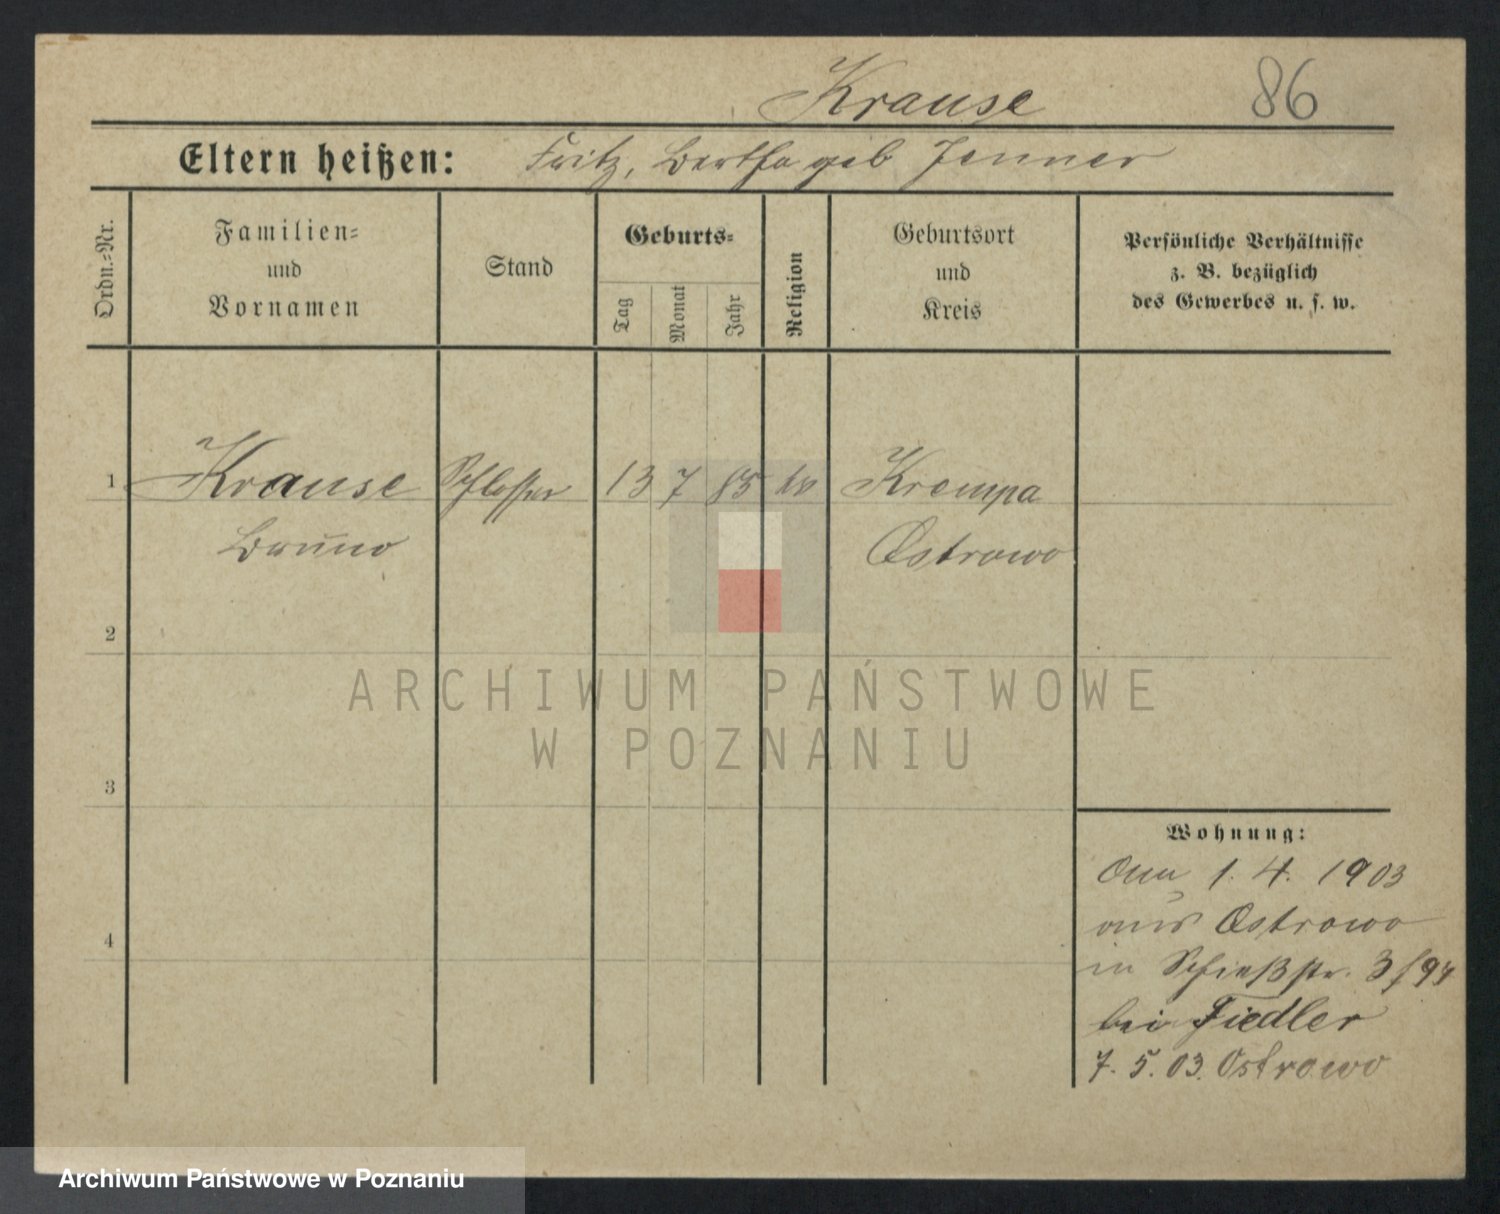 Krause 86
Eltern heißen: Fritz, Bertha geb Jenner
Ordn.=Nr.
Familien=
und
Vornamen
Stand
Geburts=
Tag
Monat
Jahr
Religion
Geburtsort
und
Kreis
Persönliche Verhältnisse
z. B. bezüglich
des Gewerbes u. s. w.
1 Krause Schlosser 13 7 85 Krempa
Bruno Ostrowo
2
3
4
Wohnung:
1. 4. 1903
aus Ostrowo
in Schießstr. 3/94
bei Fiedler
7. 5. 03. Ostrowo
ARCHIWUM PAŃSTWOWE
W POZNANIU
Archiwum Państwowe w Poznaniu